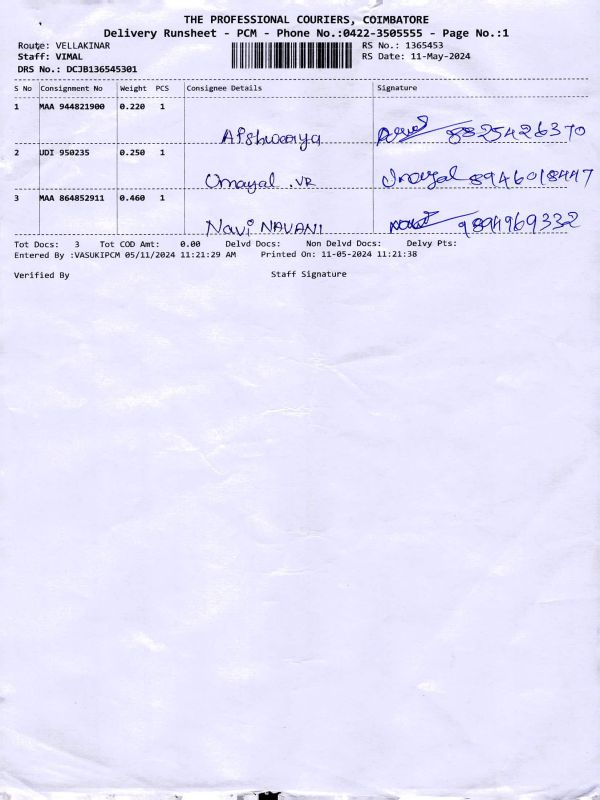 THE PROFESSIONAL COURIERS, COIMBATORE
Delivery Runsheet - PCM - Phone No.:0422-3505555 - Page No.:1
Route: VELLAKINAR RS No.: 1365453
Staff: VIMAL RS Date: 11-May-2024
DRS No.: DCJB136545301
S No Consignment No Weight PCS Consignee Details Signature
1 MAA 944821900 0.220 1
Aishwarya 8825426370
2 UDI 950235 0.250 1
Umayal .VR Umayal 8946018447
3 MAA 864852911 0.460 1
Navi NAVANI 9894969332
Tot Docs: 3 Tot COD Amt: 0.00 Delvd Docs: Non Delvd Docs: Delvy Pts:
Entered By :VASUKIPCM 05/11/2024 11:21:29 AM Printed On: 11-05-2024 11:21:38
Verified By Staff Signature